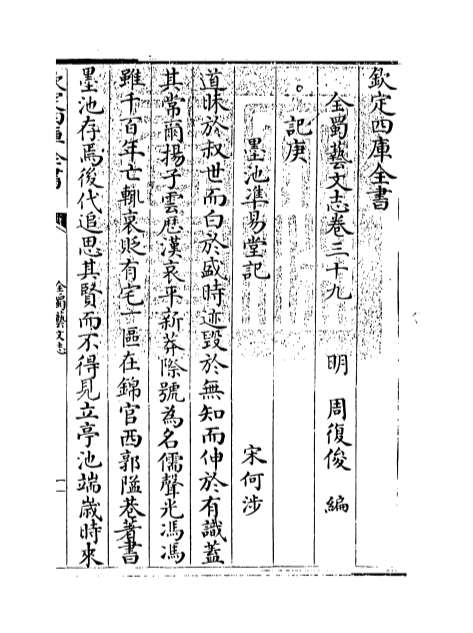 欽定四庫全書
全蜀藝文志卷三十九
明 周復俊 編
記庚
墨池凖易堂記
宋何涉
道昧於叔世而白於盛時迹毀於無知而伸於有識蓋
其常爾揚子雲歴漢哀平新莽際號為名儒聲光馮馮
雖千百年亡輒衰貶有宅一區在錦官西郭隘巷著書
墨池存焉後代追思其賢而不得見立亭池端嵗時來
欽定四庫全書
全蜀藝文志
一